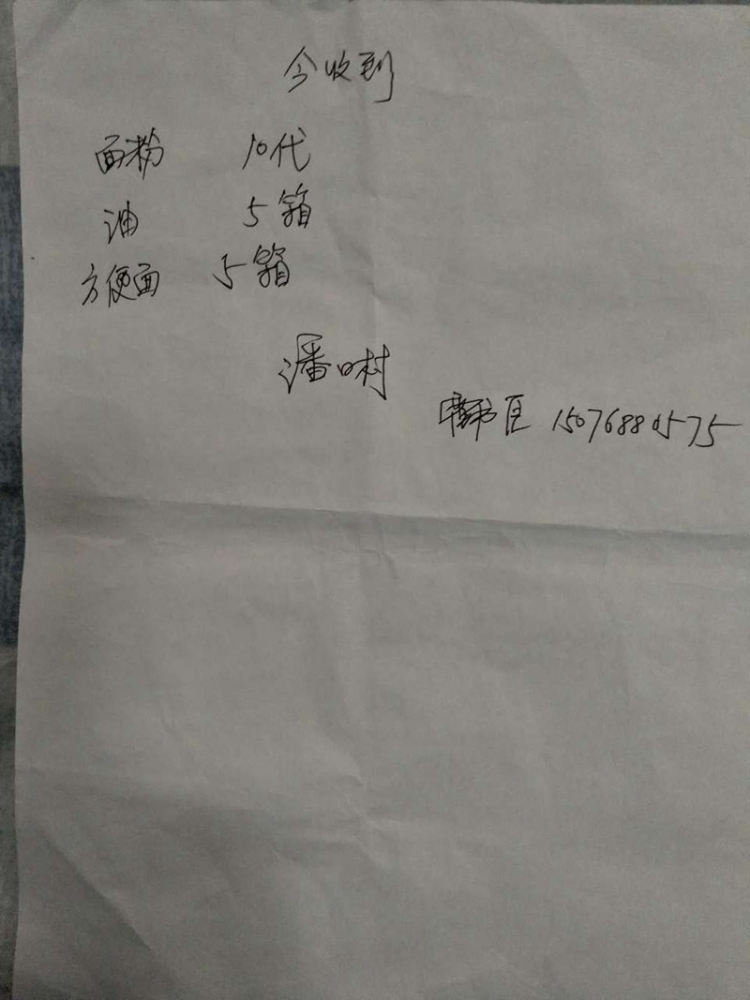 今收到
面粉 10代
油 5箱
方便面 5箱
潘口村